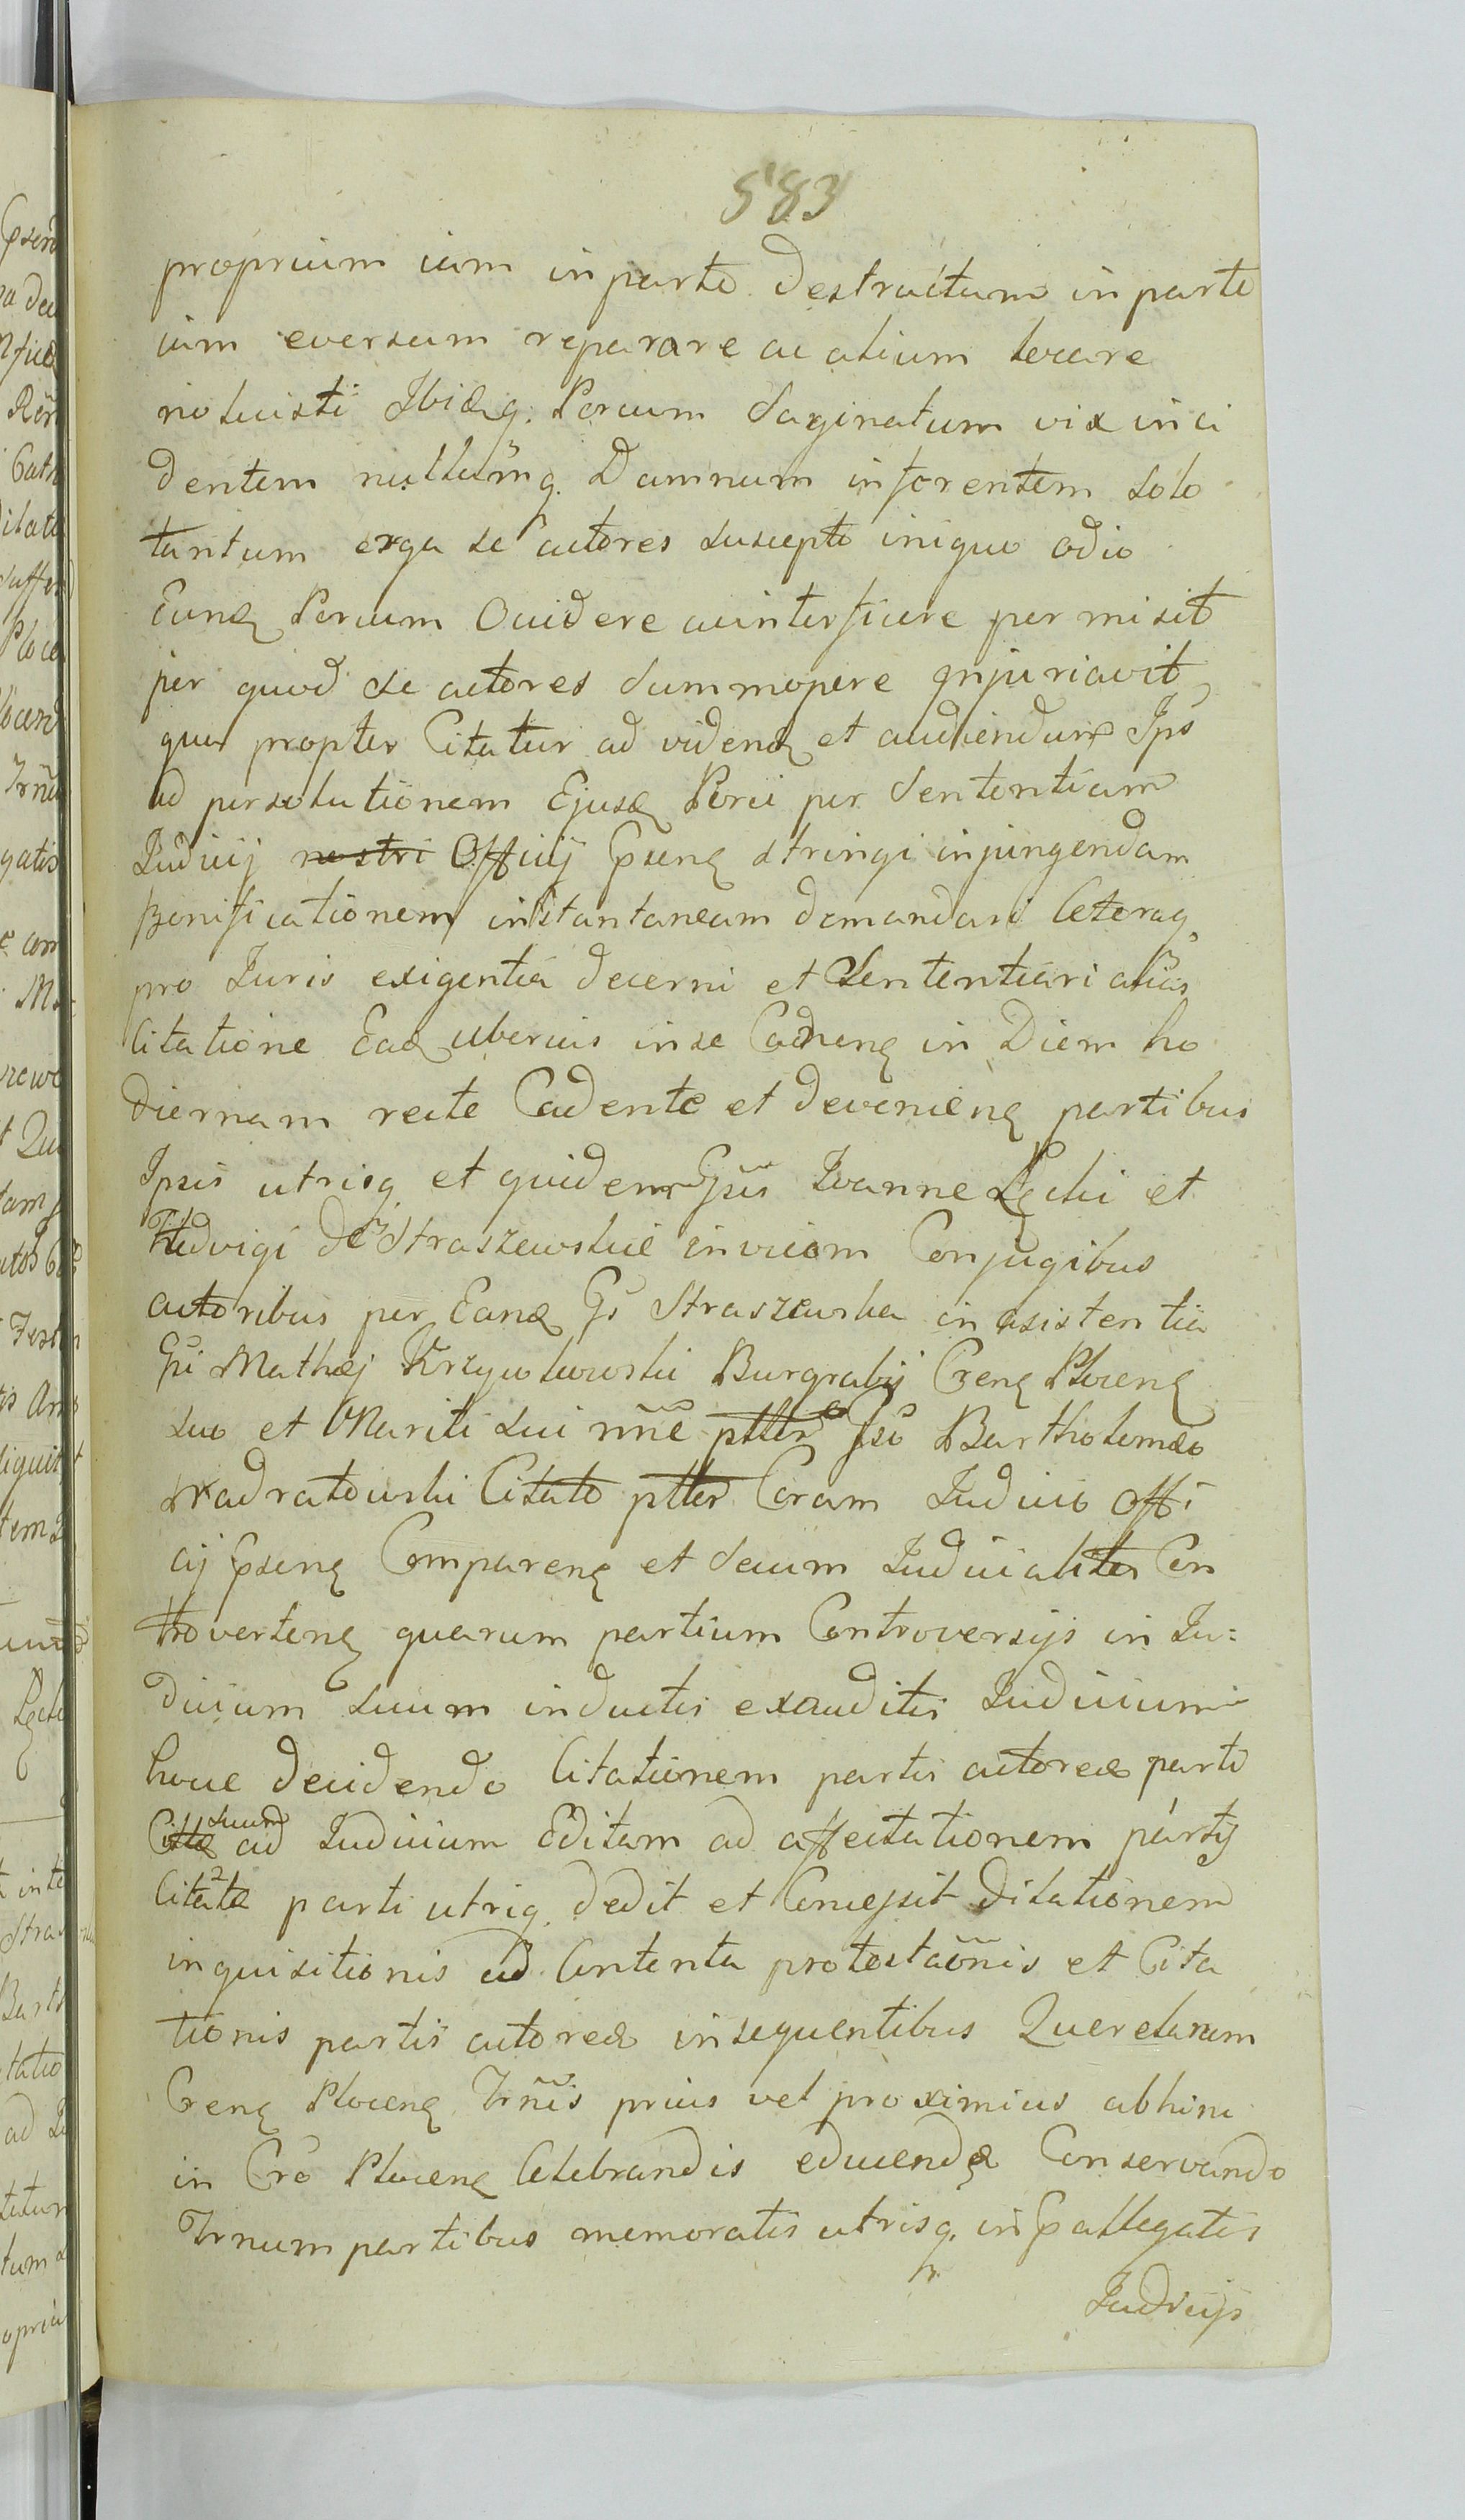 583
proprium iam in parte destructum in parte
iam eversum reparare ac alium locare
noluisti Ibidq. Porcum Saginatum vix inci
dentem nullumq. Damnum inferentem Solo
tantum erga se actores suscepto iniquo odio
Eundq Porcum Occidere ac interficere permisit
per quod se actores summopere Injuriavit
qua propter Citatur ad vidend et audiendum Ips
ad persolutionem Ejusd Porci per Sententiam
Judicij nostri Officij Gpsenq stringi injungendam
Bonificationem instantaneam demandari Ceteraq.
pro Juris exigentia decerni et Sententiari alias
Citatione Ead uberius in se Cadnenq in Diem ho
diernam recte Cadente et devenienq partibus
Ipsis utrisq et quidem Gsis Joanne Lęcki et
Hedvigi de Straszewskie invicem Conjugibus
actoribus per Eand Gs Straszewska in asistentia
Gsi Mathej Krzywkowski Burgrabij Crenq Plocenq
suo et Mariti sui nne ptter Gso Bartholomeo
Nadratowski Citato ptter Coram Judicio Offi
cij Gpsenq Comparenq et Secum Judicialiter Con
trovertenq quarum partium Controversijs in Ju=
dicium suum inductis exauditis Judicium
hocce decidendo Citationem partis actoreæ parti
Cittæ suum ad Judicium Editam ad affectationem partis
Citatæ parti utriq. dedit et Concessit Dilationem
inquisitionis ad Contenta protestaonis et Cita
tionis partis actoreæ insequentibus Querelarum
Crenq Plocenq Trnis prius vel proximius abhinc
in Cro Plocenq Celebrandis educendæ Conservando
Trnum partibus memoratis utrisq. in Gpallegatis
Judicijs